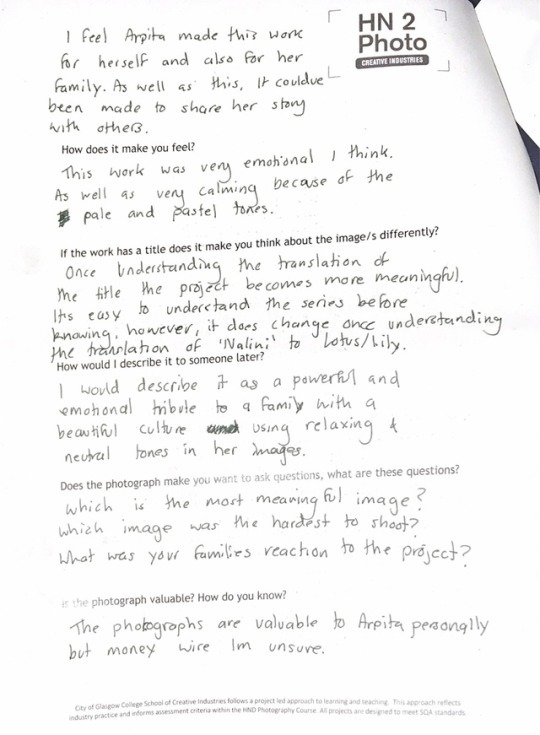 HN 2
Photo
CREATIVE INDUSTRIES
I feel Arpita made this work
for herself and also for her
family. As well as this, It couldve
been made to share her story
with others.
How does it make you feel?
This work was very emotional I think.
As well as very calming because of the
pale and pastel tones.
If the work has a title does it make you think about the image/s differently?
Once understanding the translation of
the title the project becomes more meaningful.
Its easy to understand the series before
knowing, however, it does change once understanding
the translation of 'Nalini' to Lotus/Lily.
How would I describe it to someone later?
I would describe it as a powerful and
emotional tribute to a family with a
beautiful culture using relaxing &
neutral tones in her images.
Does the photograph make you want to ask questions, what are these questions?
Which is the most meaningful image?
Which image was the hardest to shoot?
What was your families reaction to the project?
Is the photograph valuable? How do you know?
The photographs are valuable to Arpita personally
but money wise Im unsure.
City of Glasgow College School of Creative Industries follows a project led approach to learning and teaching. This approach reflects
industry practice and informs assessment criteria within the HND Photography Course. All projects are designed to meet SQA standards.